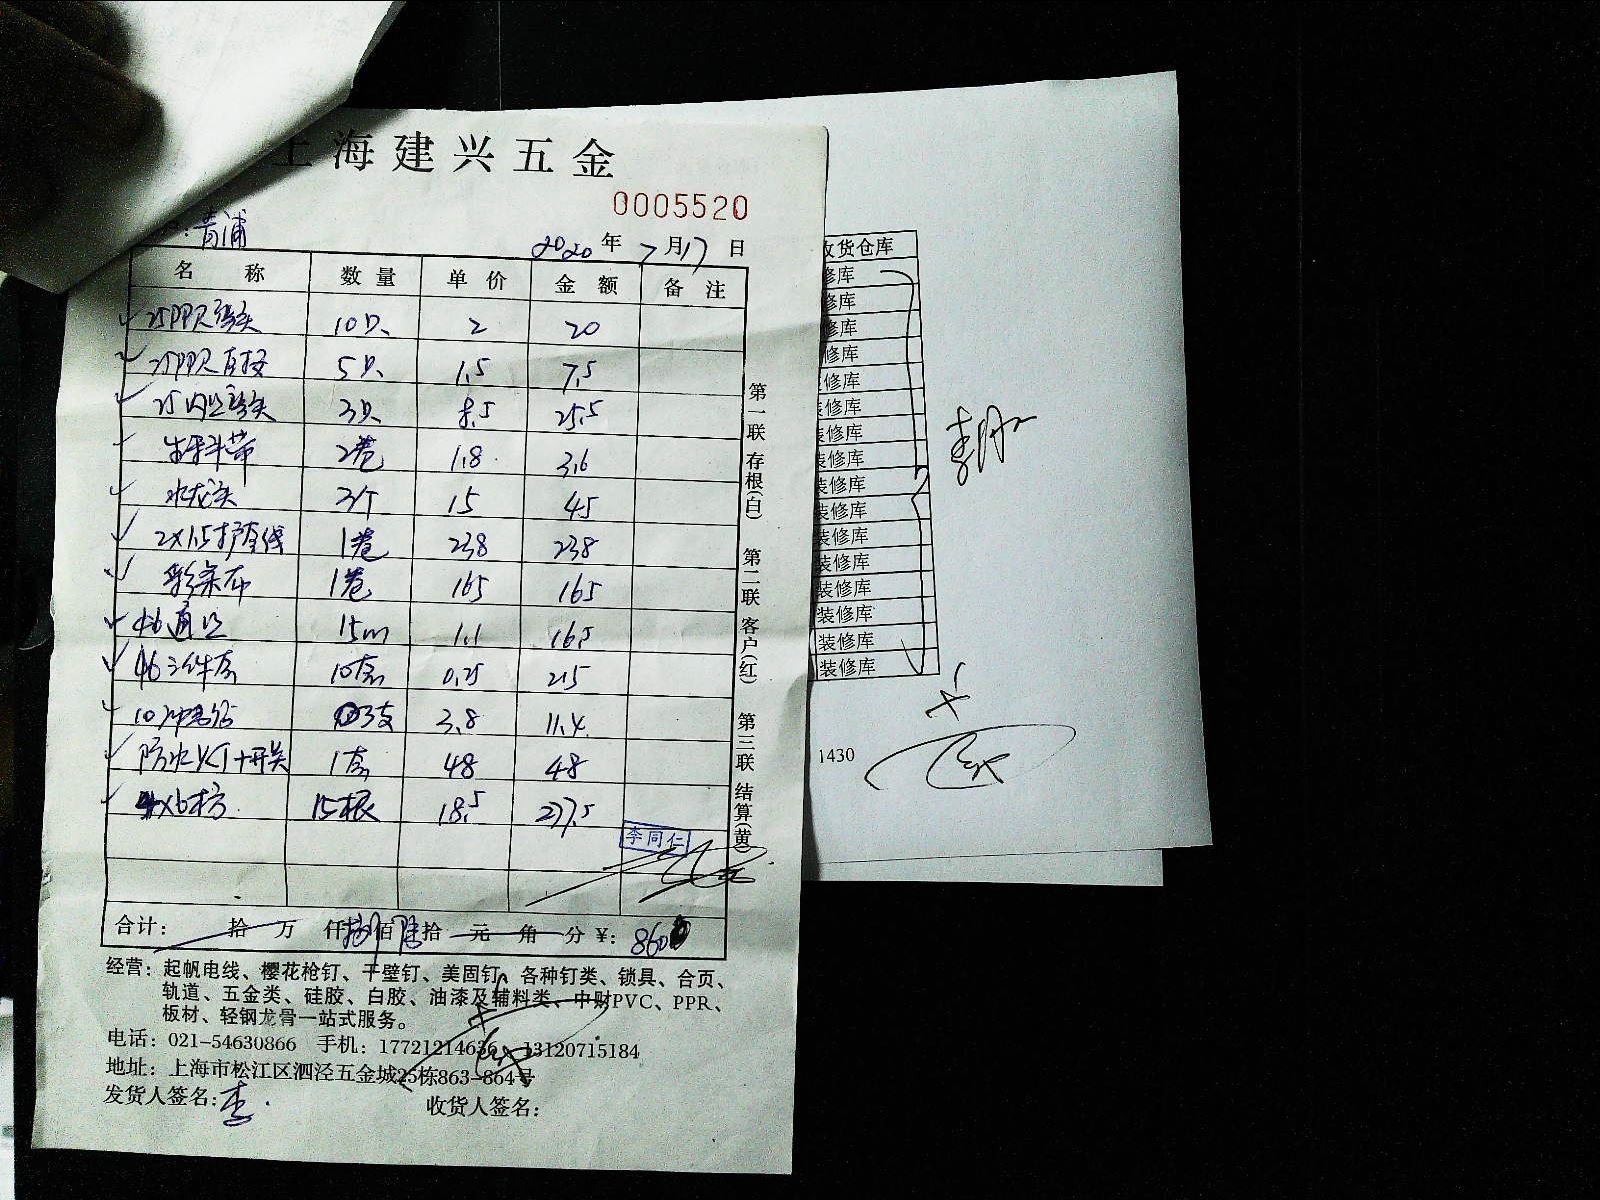 上海建兴五金
0005520
青浦
2020年7月17日
名称 数量 单价 金额 备注
25PPR弯头 10只 2 20
25PPR直接 5只 1.5 7.5
25内丝弯头 3只 8.5 25.5
生料带 2卷 1.8 3.6
水龙头 3个 15 45
2×1.5护套线 1卷 238 238
彩条布 1卷 165 165
4分通丝 15m 1.1 16.5
10套 0.25 2.5
10冲击钻 3支 3.8 11.4
防水灯+开关 1套 48 48
4×6木方 15根 18.5 277.5
李同仁
合计: 拾 万 仟捌佰陆拾 元 角 分 ¥: 860
第一联 存根(白) 第二联 客户(红) 第三联 结算(黄)
经营: 起帆电线、樱花枪钉、干壁钉、美固钉、各种钉类、锁具、合页、
轨道、五金类、硅胶、白胶、油漆及辅料类、中财PVC、PPR、
板材、轻钢龙骨一站式服务。
电话: 021-54630866 手机: 17721214636 13120715184
地址: 上海市松江区泗泾五金城25栋863-864号
发货人签名: 李 收货人签名:
收货仓库
修库
修库
修库
修库
装修库
装修库
装修库
装修库
装修库
装修库
装修库
装修库
装修库
装修库
装修库
装修库
1430